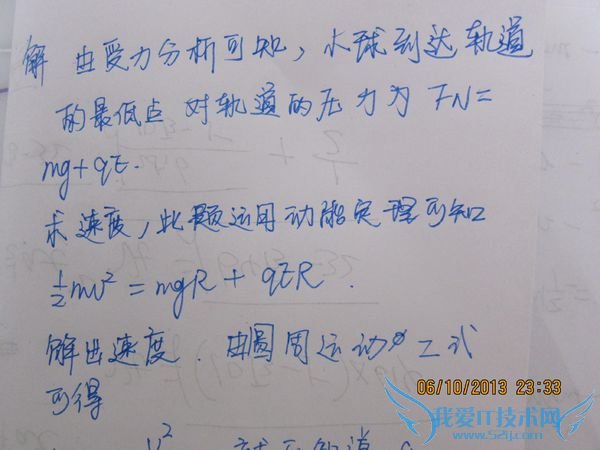 解 由受力分析可知，小球到达轨道
的最低点 对轨道的压力为 FN=
mg+qE.
求速度，此题运用动能定理可知
½mv²=mgR+qER.
解出速度. 由圆周运动公式
可得
v²
06/10/2013 23:33
我爱IT技术网
www.52ij.com